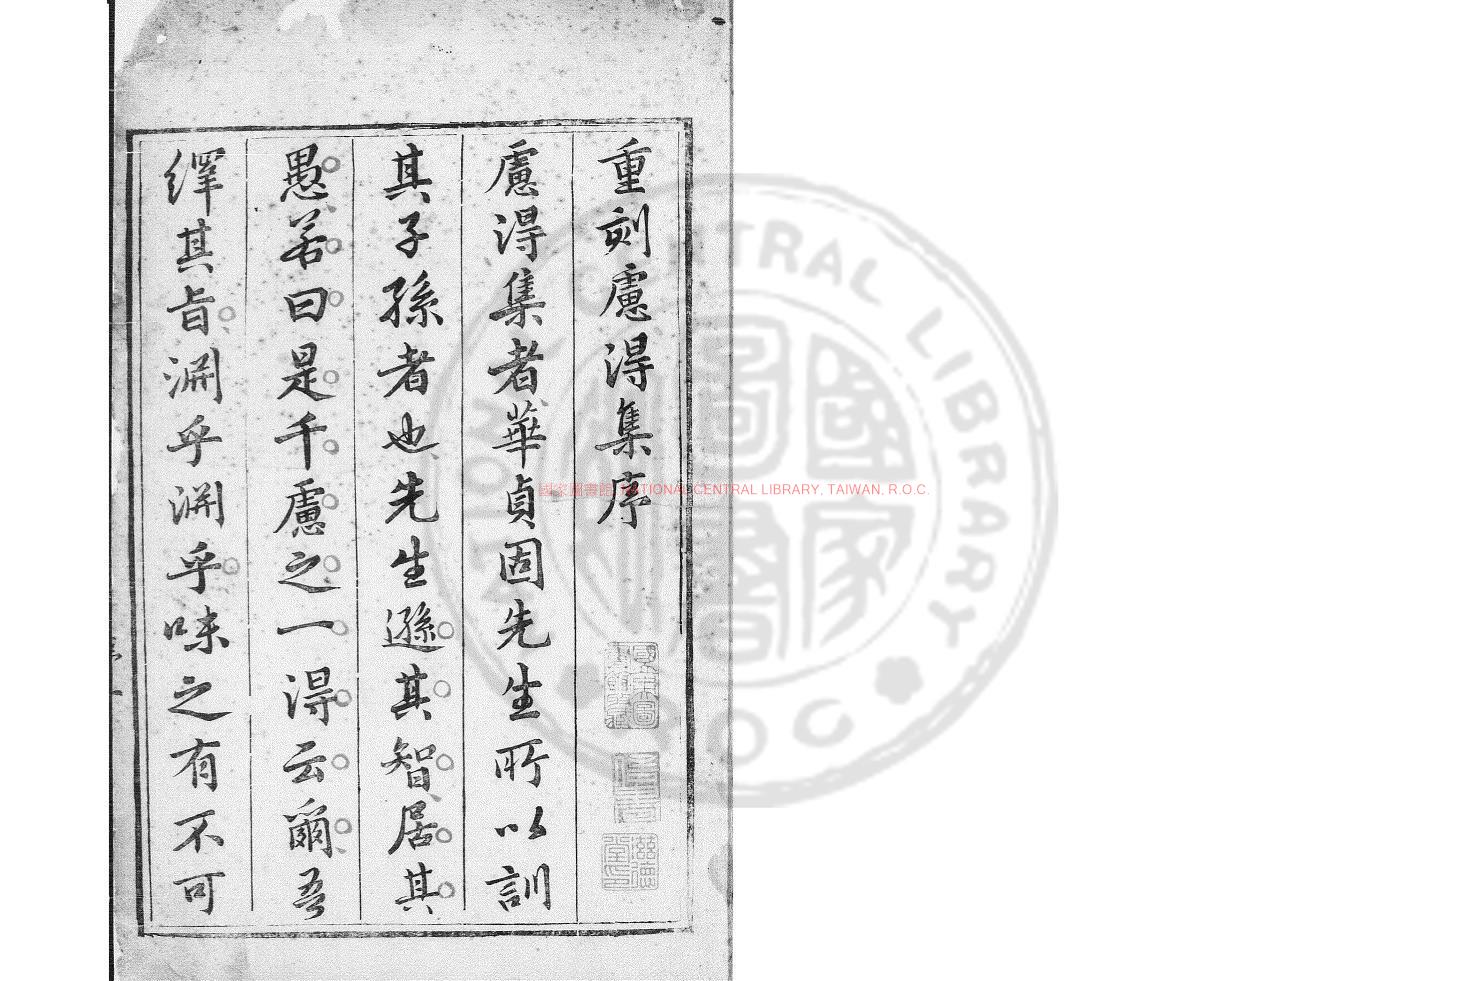 重刻慮得集序
慮得集者華貞固先生所以訓
其子孫者也先生遜其智居其
愚若曰是千慮之一得云爾吾
繹其旨淵乎淵乎味之有不可
國家圖書館, NATIONAL CENTRAL LIBRARY, TAIWAN, R.O.C.